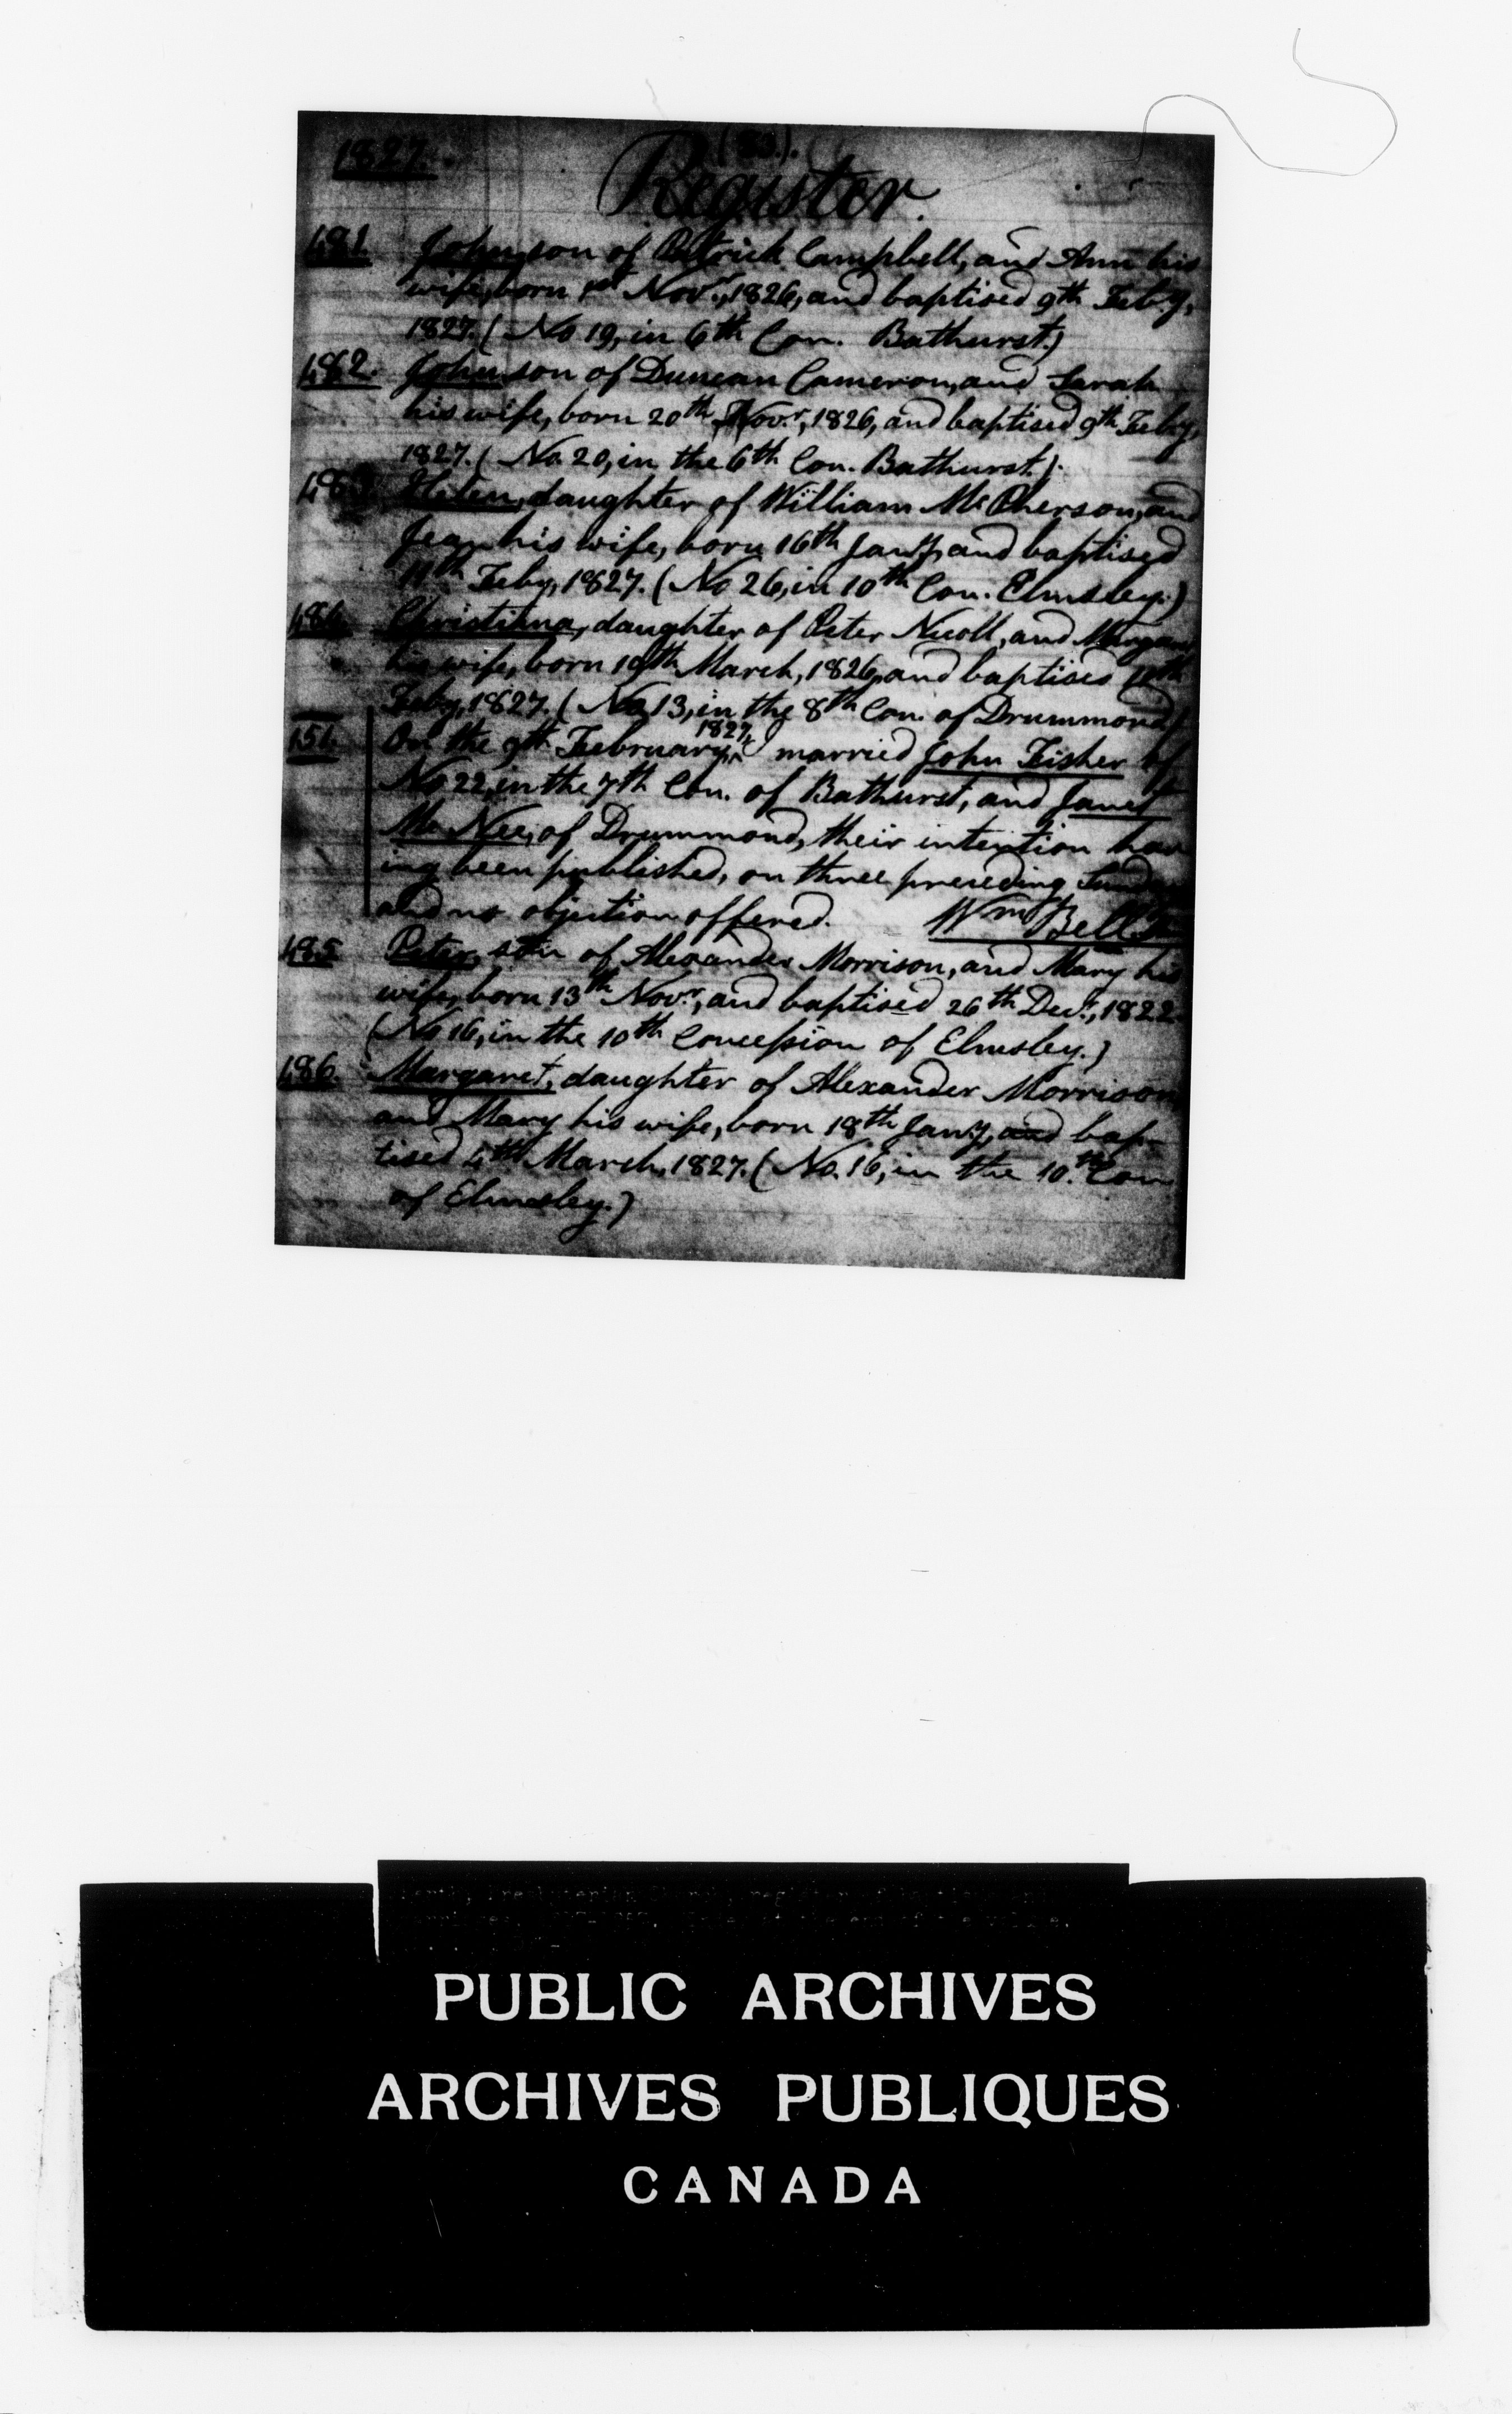 1827.
(83.).
Register.
481. John, son of Patrick Campbell, and Ann his
wife, born 1st Novr., 1826, and baptised 9th Feby,
1827. (No 19, in 6th Con. Bathurst.)
482. John son of Duncan Cameron, and Sarah
his wife, born 20th Novr., 1826, and baptised 9th Feby,
1827. (No 20, in the 6th Con. Bathurst.).
483. Helen, daughter of William McPherson, and
Jean his wife, born 16th Jany, and baptised
11th Feby, 1827. (No 26, in 10th Con. Elmsley.)
484. Christiana, daughter of Peter Nicoll, and
his wife, born 19th March, 1826, and baptised
Feby, 1827. (No 13, in the 8th Con. of Drummond)
151. On the 9th February, 1827, I married John Fisher of
No 22, in the 7th Con. of Bathurst, and Janet
McNee, of Drummond, their intention hav
ing been published, on three preceding
and no objection offered. Wm Bell
485. Peter, son of Alexander Morrison, and Mary his
wife, born 13th Novr., and baptised 26th Decr., 1822.
(No 16, in the 10th Concession of Elmsley.)
486. Margaret, daughter of Alexander Morrison
and Mary his wife, born 18th Jany, and bap-
tised 4th March, 1827. (No. 16, in the 10th Con
of Elmsley.)
PUBLIC ARCHIVES
ARCHIVES PUBLIQUES
CANADA